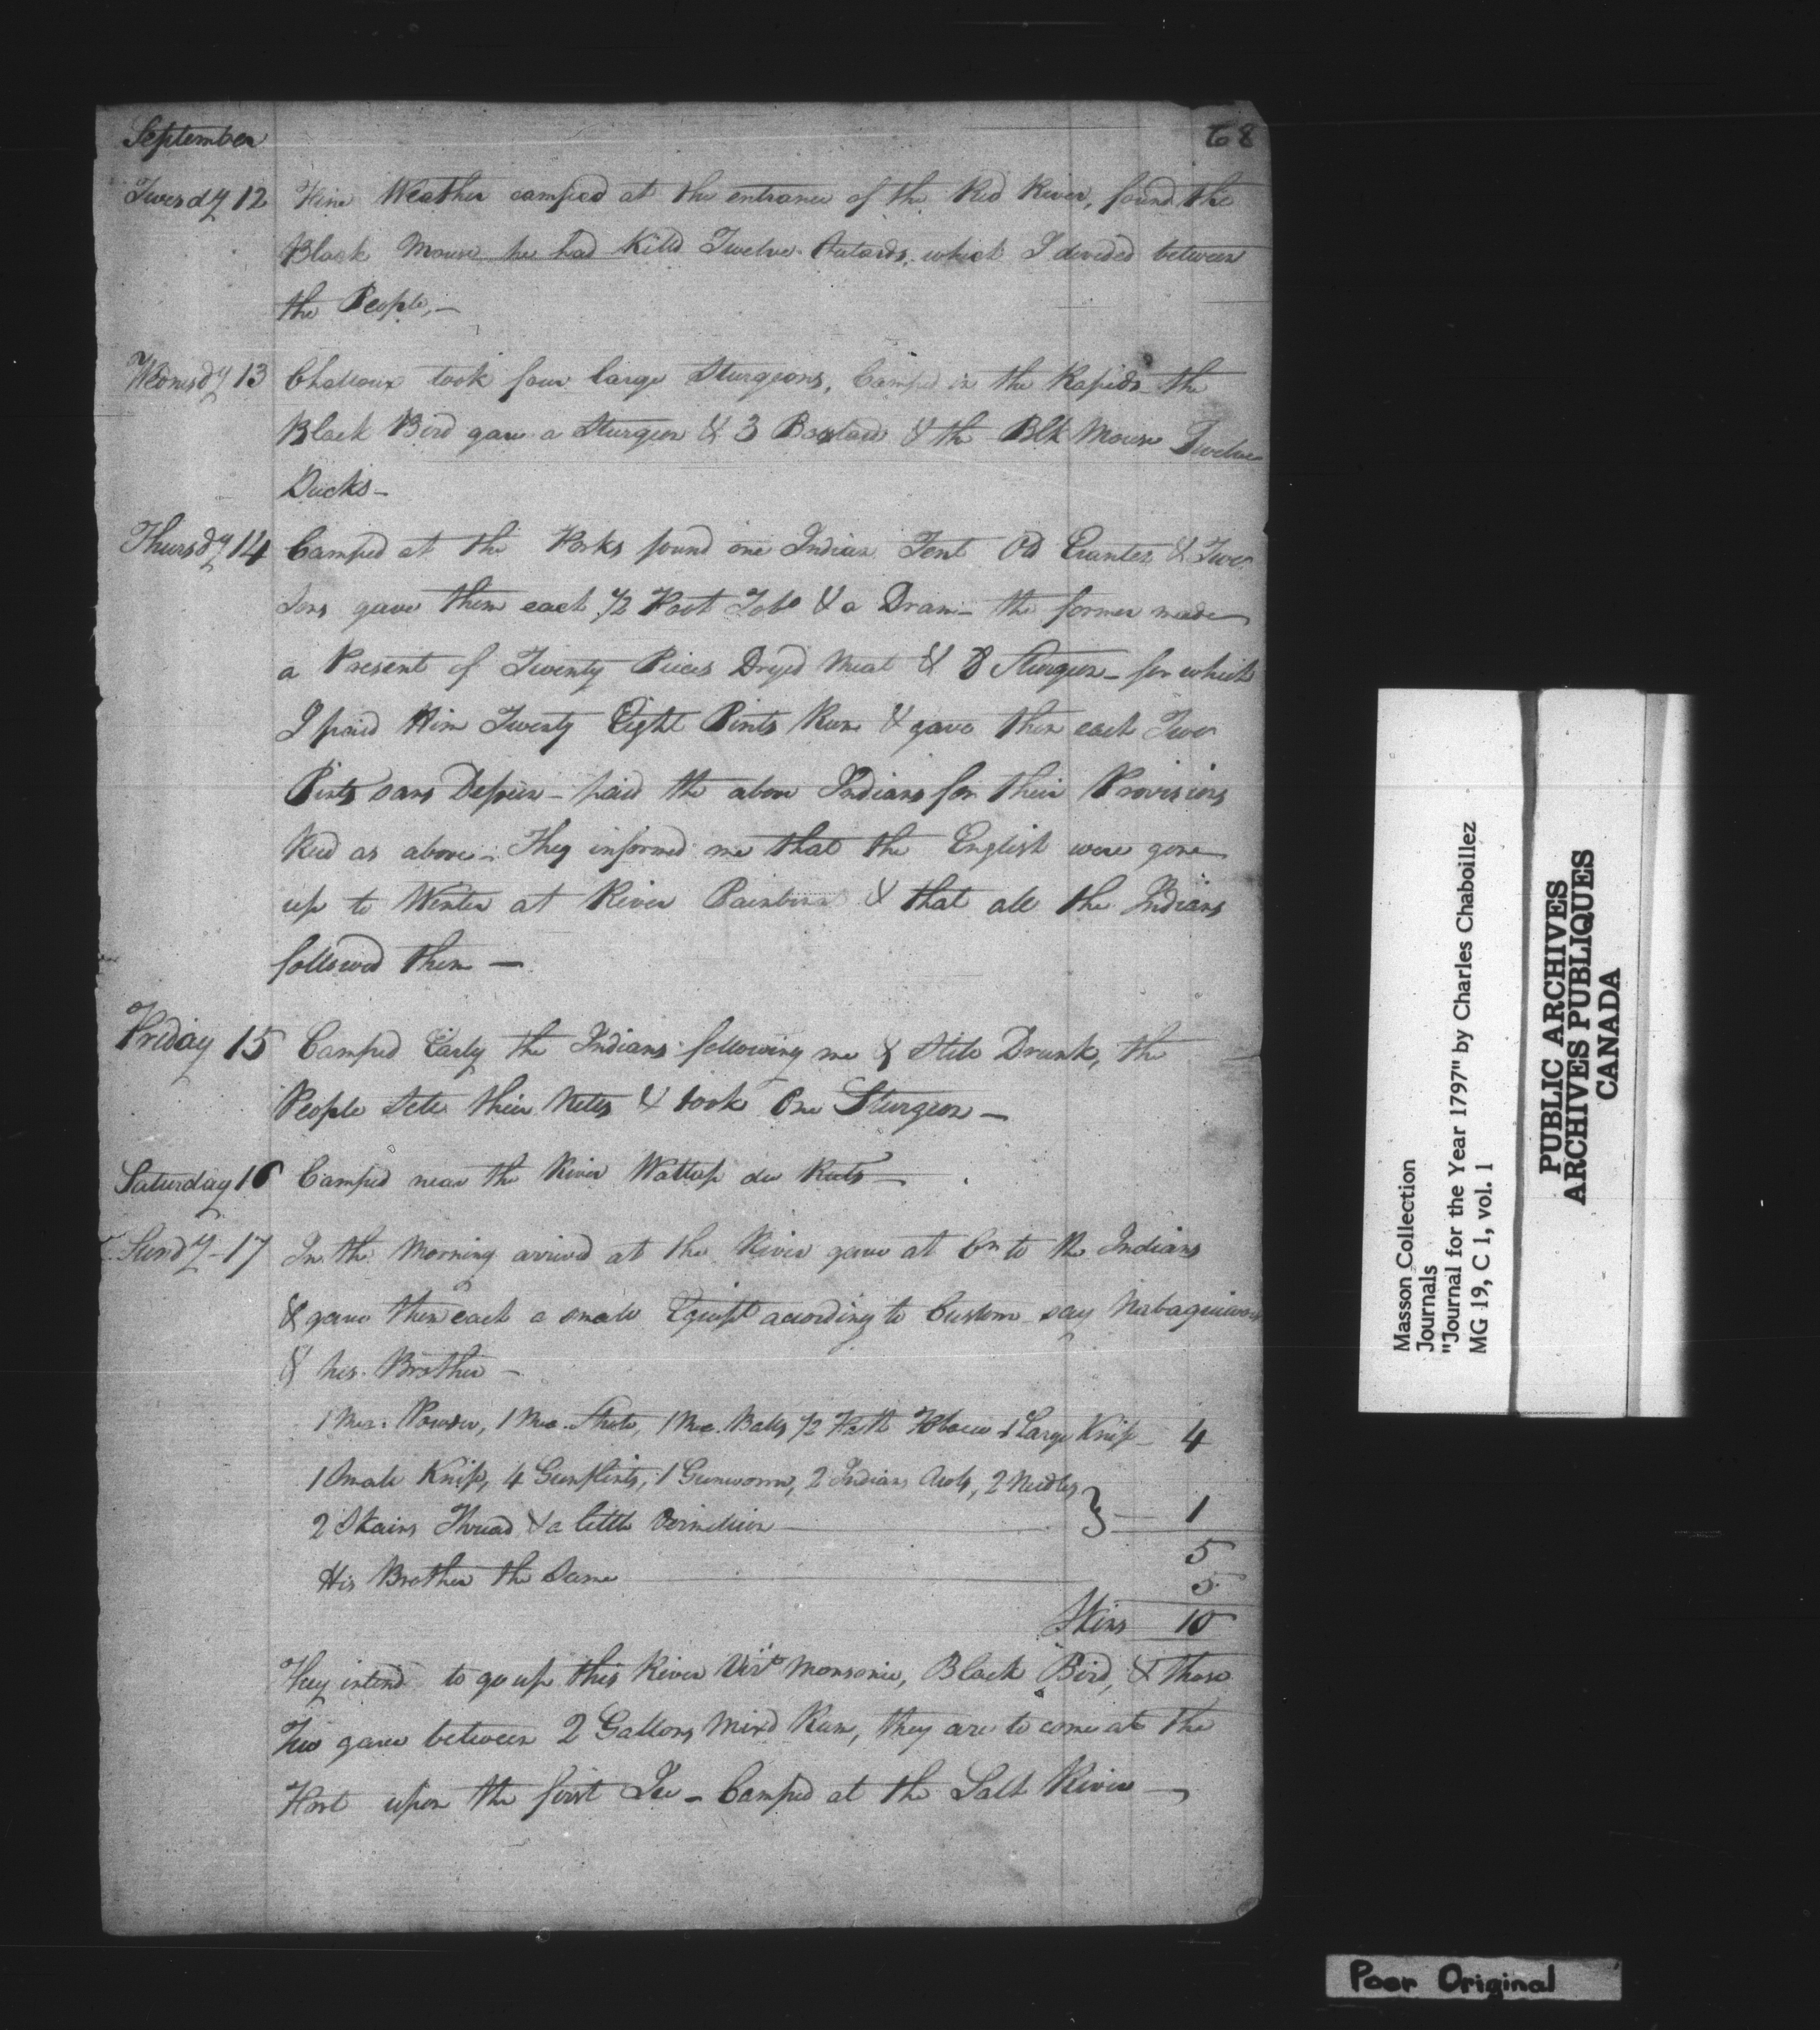 September
68
Tuesdy 12 Fine Weather camped at the entrance of the Red River, found the
Black Mouse he had Killd Twelve Outards, which I devided between
the People,—
Wednesdy 13 Challoux took four large Sturgeons, Camped in the Rapids the
Black Bird gave a Sturgeon & 3 Bustard & the Blk Mouse Twelve
Ducks—
Thursdy 14 Camped at the Forks found one Indian Tent Od & Two
Sons gave them each 1/2 Foot Tobo & a Dram— the former made
a Present of Twenty Pieces Dryed Meat & 8 Sturgeon— for which
I paid Him Twenty Eight Pints Rum & gave them each Two
Pints sans Dessein— paid the above Indians for their Provisions
Red as above— They informed me that the English were gone
up to Winter at River Painbina & that all the Indians
followed them—
Friday 15 Camped Early the Indians following me & Still Drunk, the
People Sett their Netts & took One Sturgeon—
Saturday 16 Camped near the River Wattap du Ruts—
Sundy— 17 In the Morning arrived at the River gave at Cn to the Indians
& gave them each a small Equipt acording to Custom say
& his Brother—
1 Mea. Powder, 1 Mea. Shott, 1 Mea. Balls 1/2 Fath Tobacco 1 Large Knife— 4
1 Small Knife, 4 Gunflints, 1 Gunworm, 2 Indian Awls, 2 Needles
2 Skains Thread & a little Vermilion — } — 1
5
His Brother the Same — 5
Skins 10
They intend to go up this River Vizt Monsonie, Black Bird, & those
Two gave between 2 Gallons Mixd Rum, they are to come at the
Fort upon the first Ice— Camped at the Salt River—
Masson Collection
Journals
"Journal for the Year 1797" by Charles Chaboillez
MG 19, C 1, vol. 1
PUBLIC ARCHIVES
ARCHIVES PUBLIQUES
CANADA
Poor Original